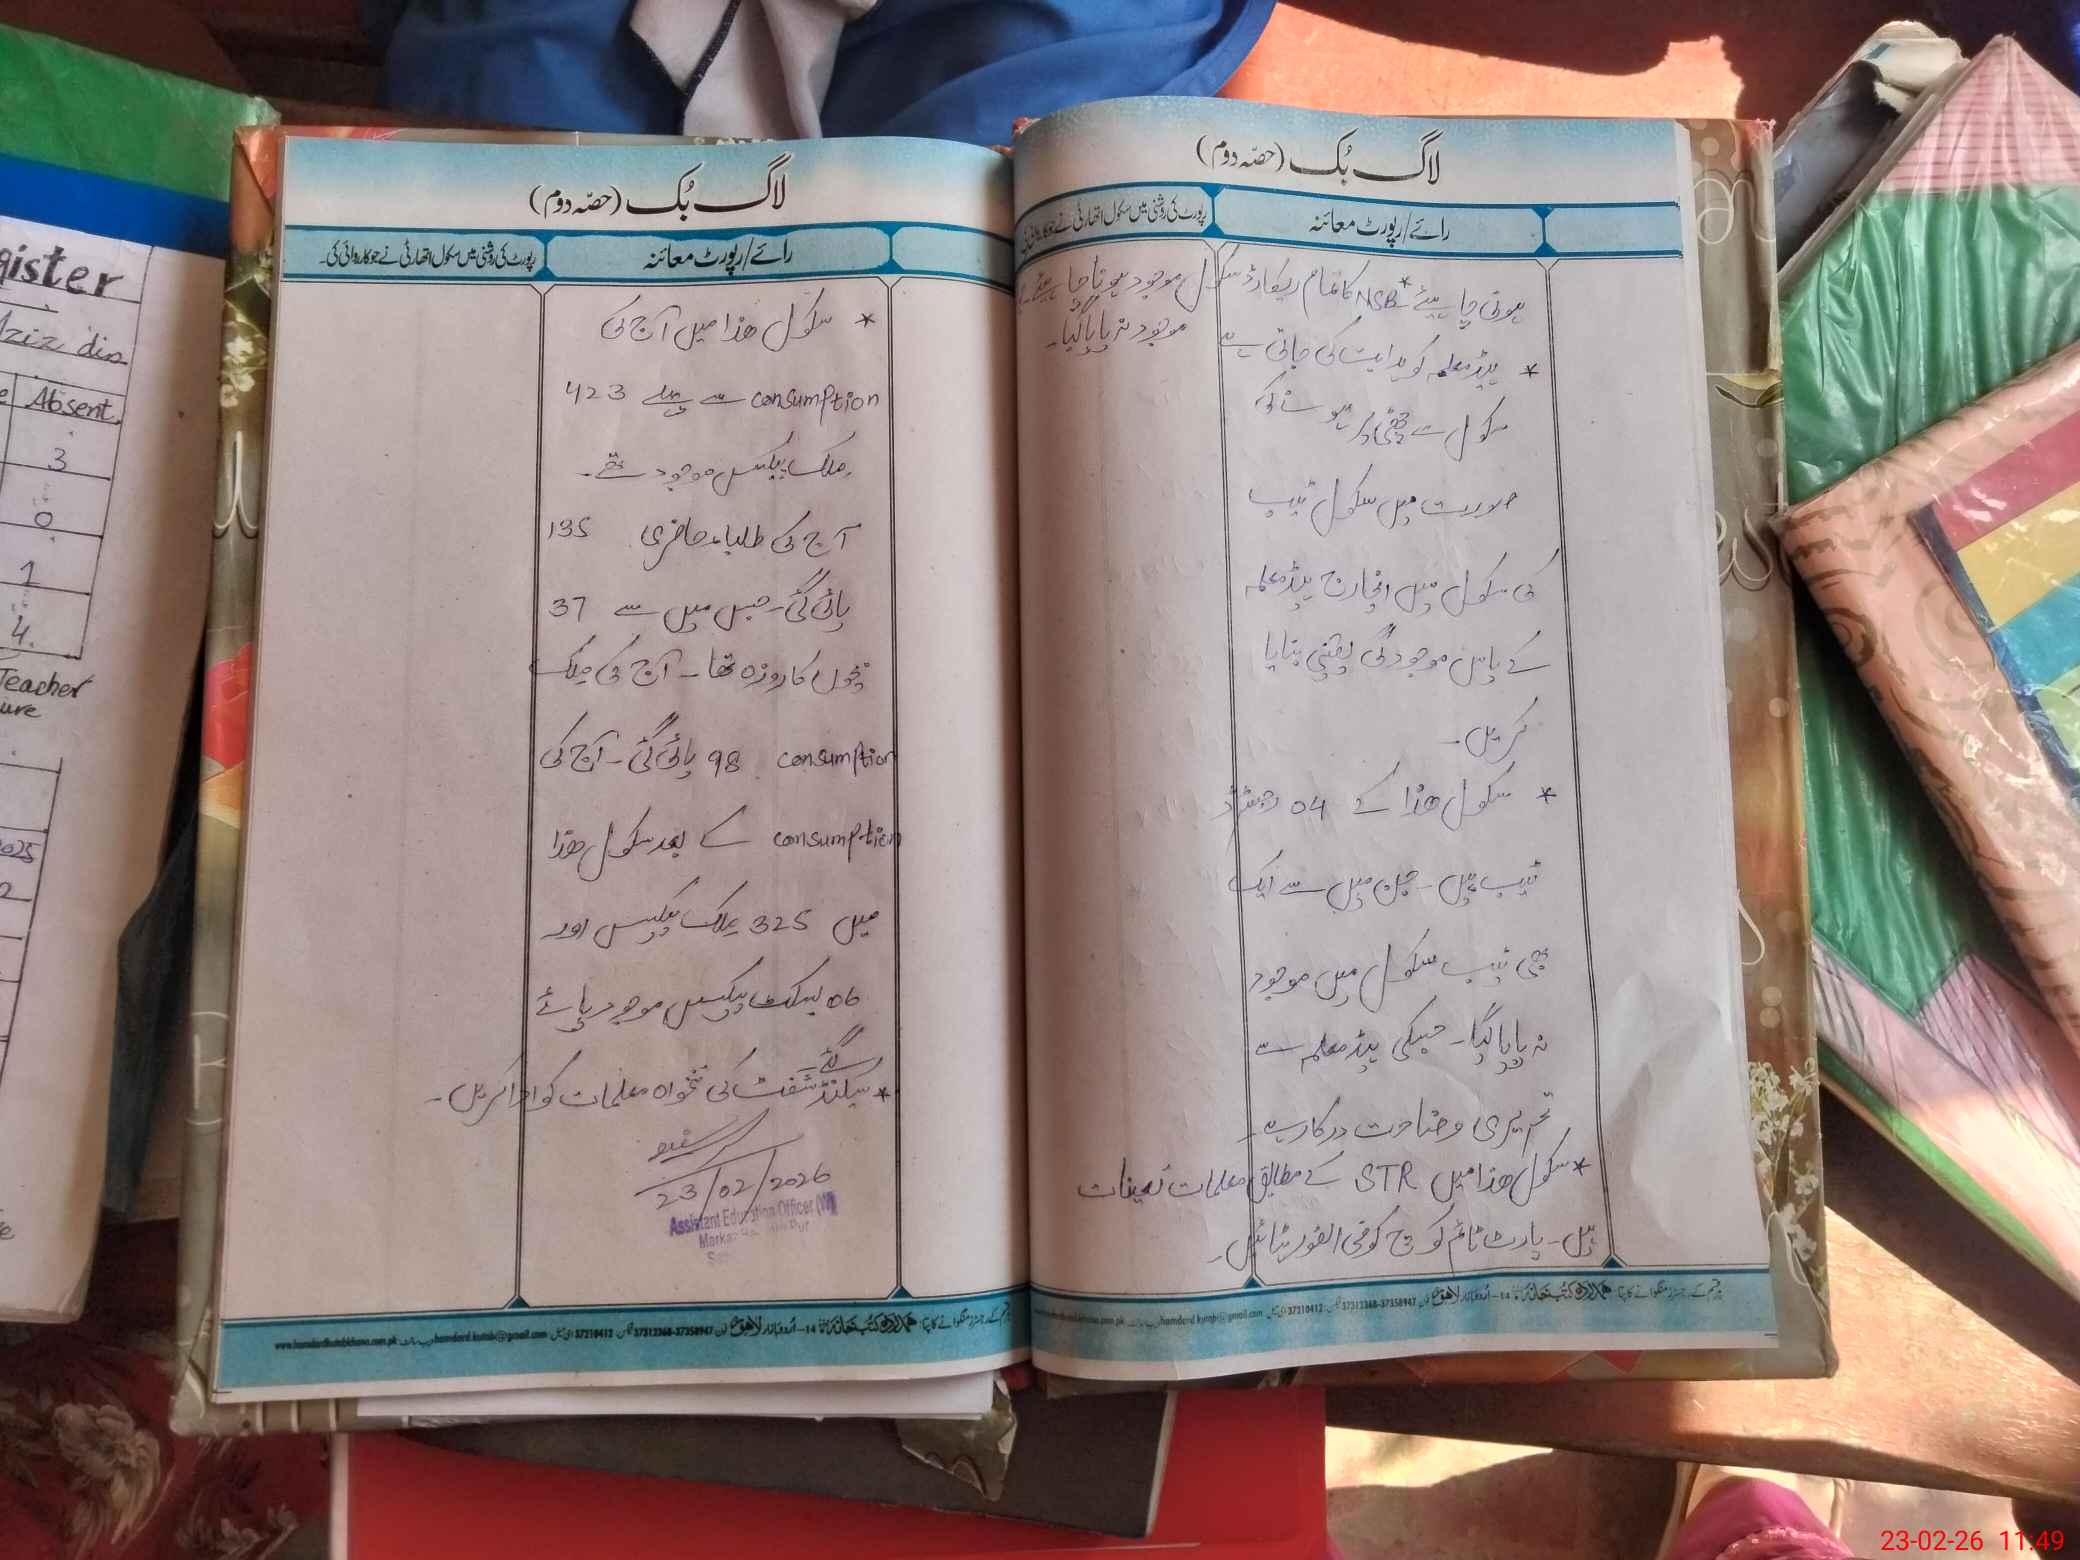 لاگ بُک (حصّہ دوم)
رائے/رپورٹ معائنہ
رپورٹ کی روشنی میں سکول اتھارٹی نے جو کاروائی کی۔
ہونی چاہیئے * NSB کا تمام ریکارڈ سکول موجود ہونا چاہیئے۔
موجود نہ پایا گیا۔
* ہیڈ معلمہ کو ہدایت کی جاتی ہے
سکول سے چھٹی پر ہونے کی
صورت میں سکول ٹیب
کی سکول میں انچارج ہیڈ معلمہ
کے پاس موجودگی یقینی بنایا
کریں۔
* سکول ھذا کے 04 رجسٹرڈ
ٹیب ہیں۔ جن میں سے ایک
بھی ٹیب سکول میں موجود
نہ پایا گیا۔ جسکی ہیڈ معلمہ سے
تحریری وضاحت درکار ہے۔
* سکول ھذا میں STR کے مطابق معلمات تعینات
ہیں۔ پارٹ ٹائم کوچ کو فی الفور ہٹائیں۔
لاگ بُک (حصّہ دوم)
رائے/رپورٹ معائنہ
رپورٹ کی روشنی میں سکول اتھارٹی نے جو کاروائی کی۔
* سکول ھذا میں آج کی
consumption سے پہلے 423
ملک پیکس موجود تھے۔
آج کی طلباء حاضری 135
پائی گئی۔ جس میں سے 37
بچوں کا روزہ تھا۔ آج کی ملک
consumption 98 پائی گئی۔ آج کی
consumption کے بعد سکول ھذا
میں 325 ملک پیکس اور
06 بسکٹ پیکس موجود پائے
گئے۔
* سیکنڈ شفٹ کی تنخواہ معلمات کو ادا کریں۔
23/02/2026
Assistant Education Officer (W)
Markaz
www.hamdardkutabkhana.com.pk hamdard.kutab@gmail.com 37310412 37312368-37358947
gister
Aziz din
Absent
3
0
1
4
Teacher
ure
2025
2
23-02-26 11:49